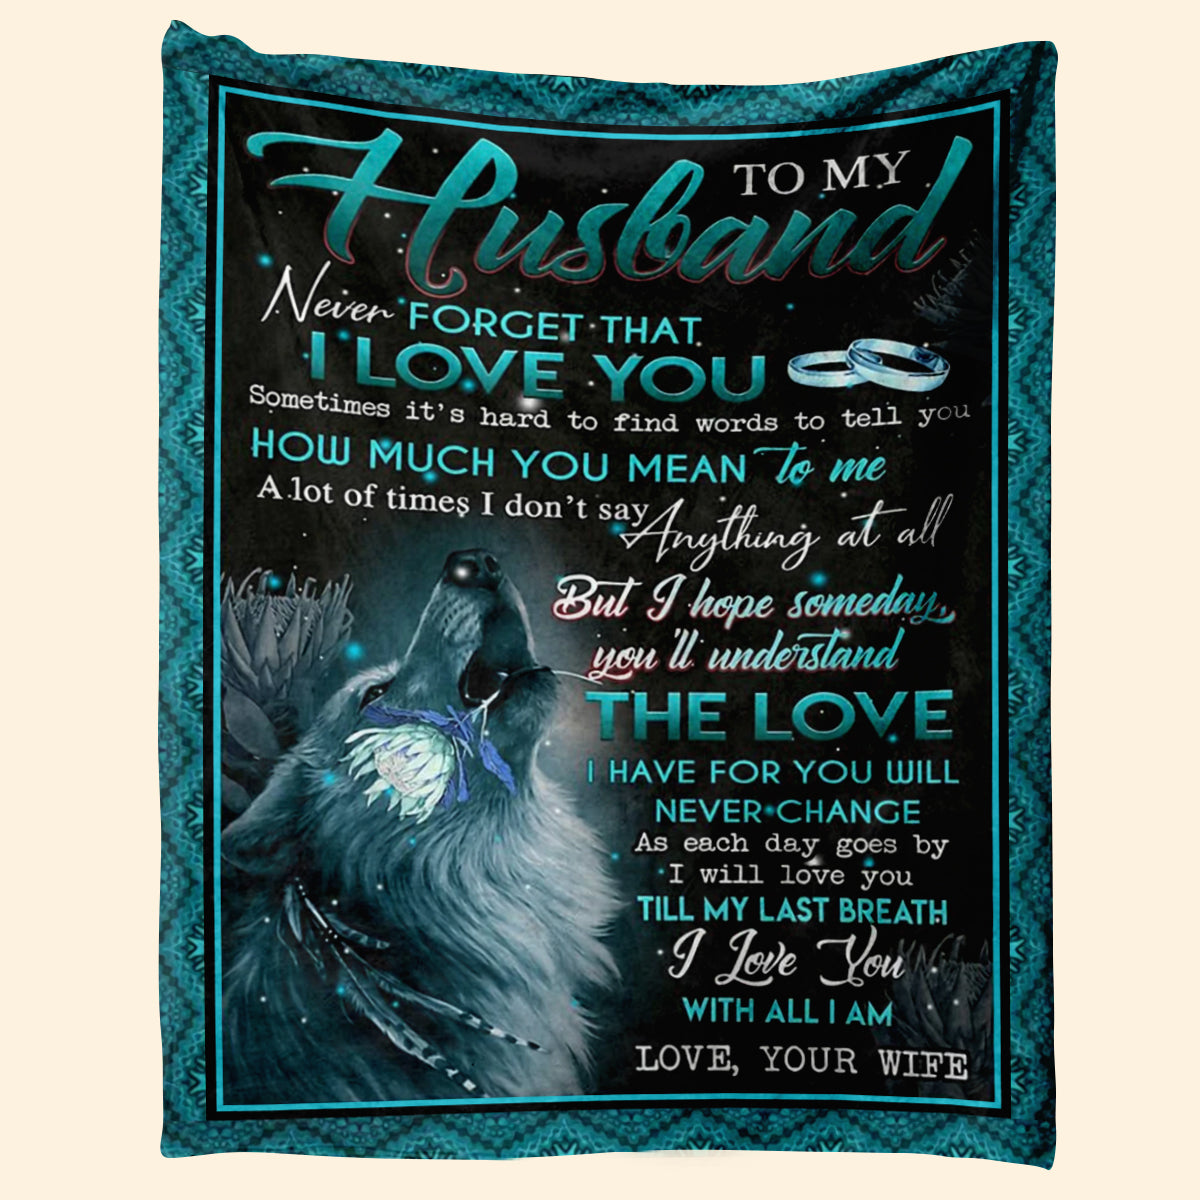 TO MY
Husband
Never FORGET THAT
I LOVE YOU
Sometimes it's hard to find words to tell you
HOW MUCH YOU MEAN to me
A lot of times I don't say
Anything at all
But I hope someday,
you'll understand
THE LOVE
I HAVE FOR YOU WILL
NEVER CHANGE
As each day goes by
I will love you
TILL MY LAST BREATH
I Love You
WITH ALL I AM
LOVE, YOUR WIFE